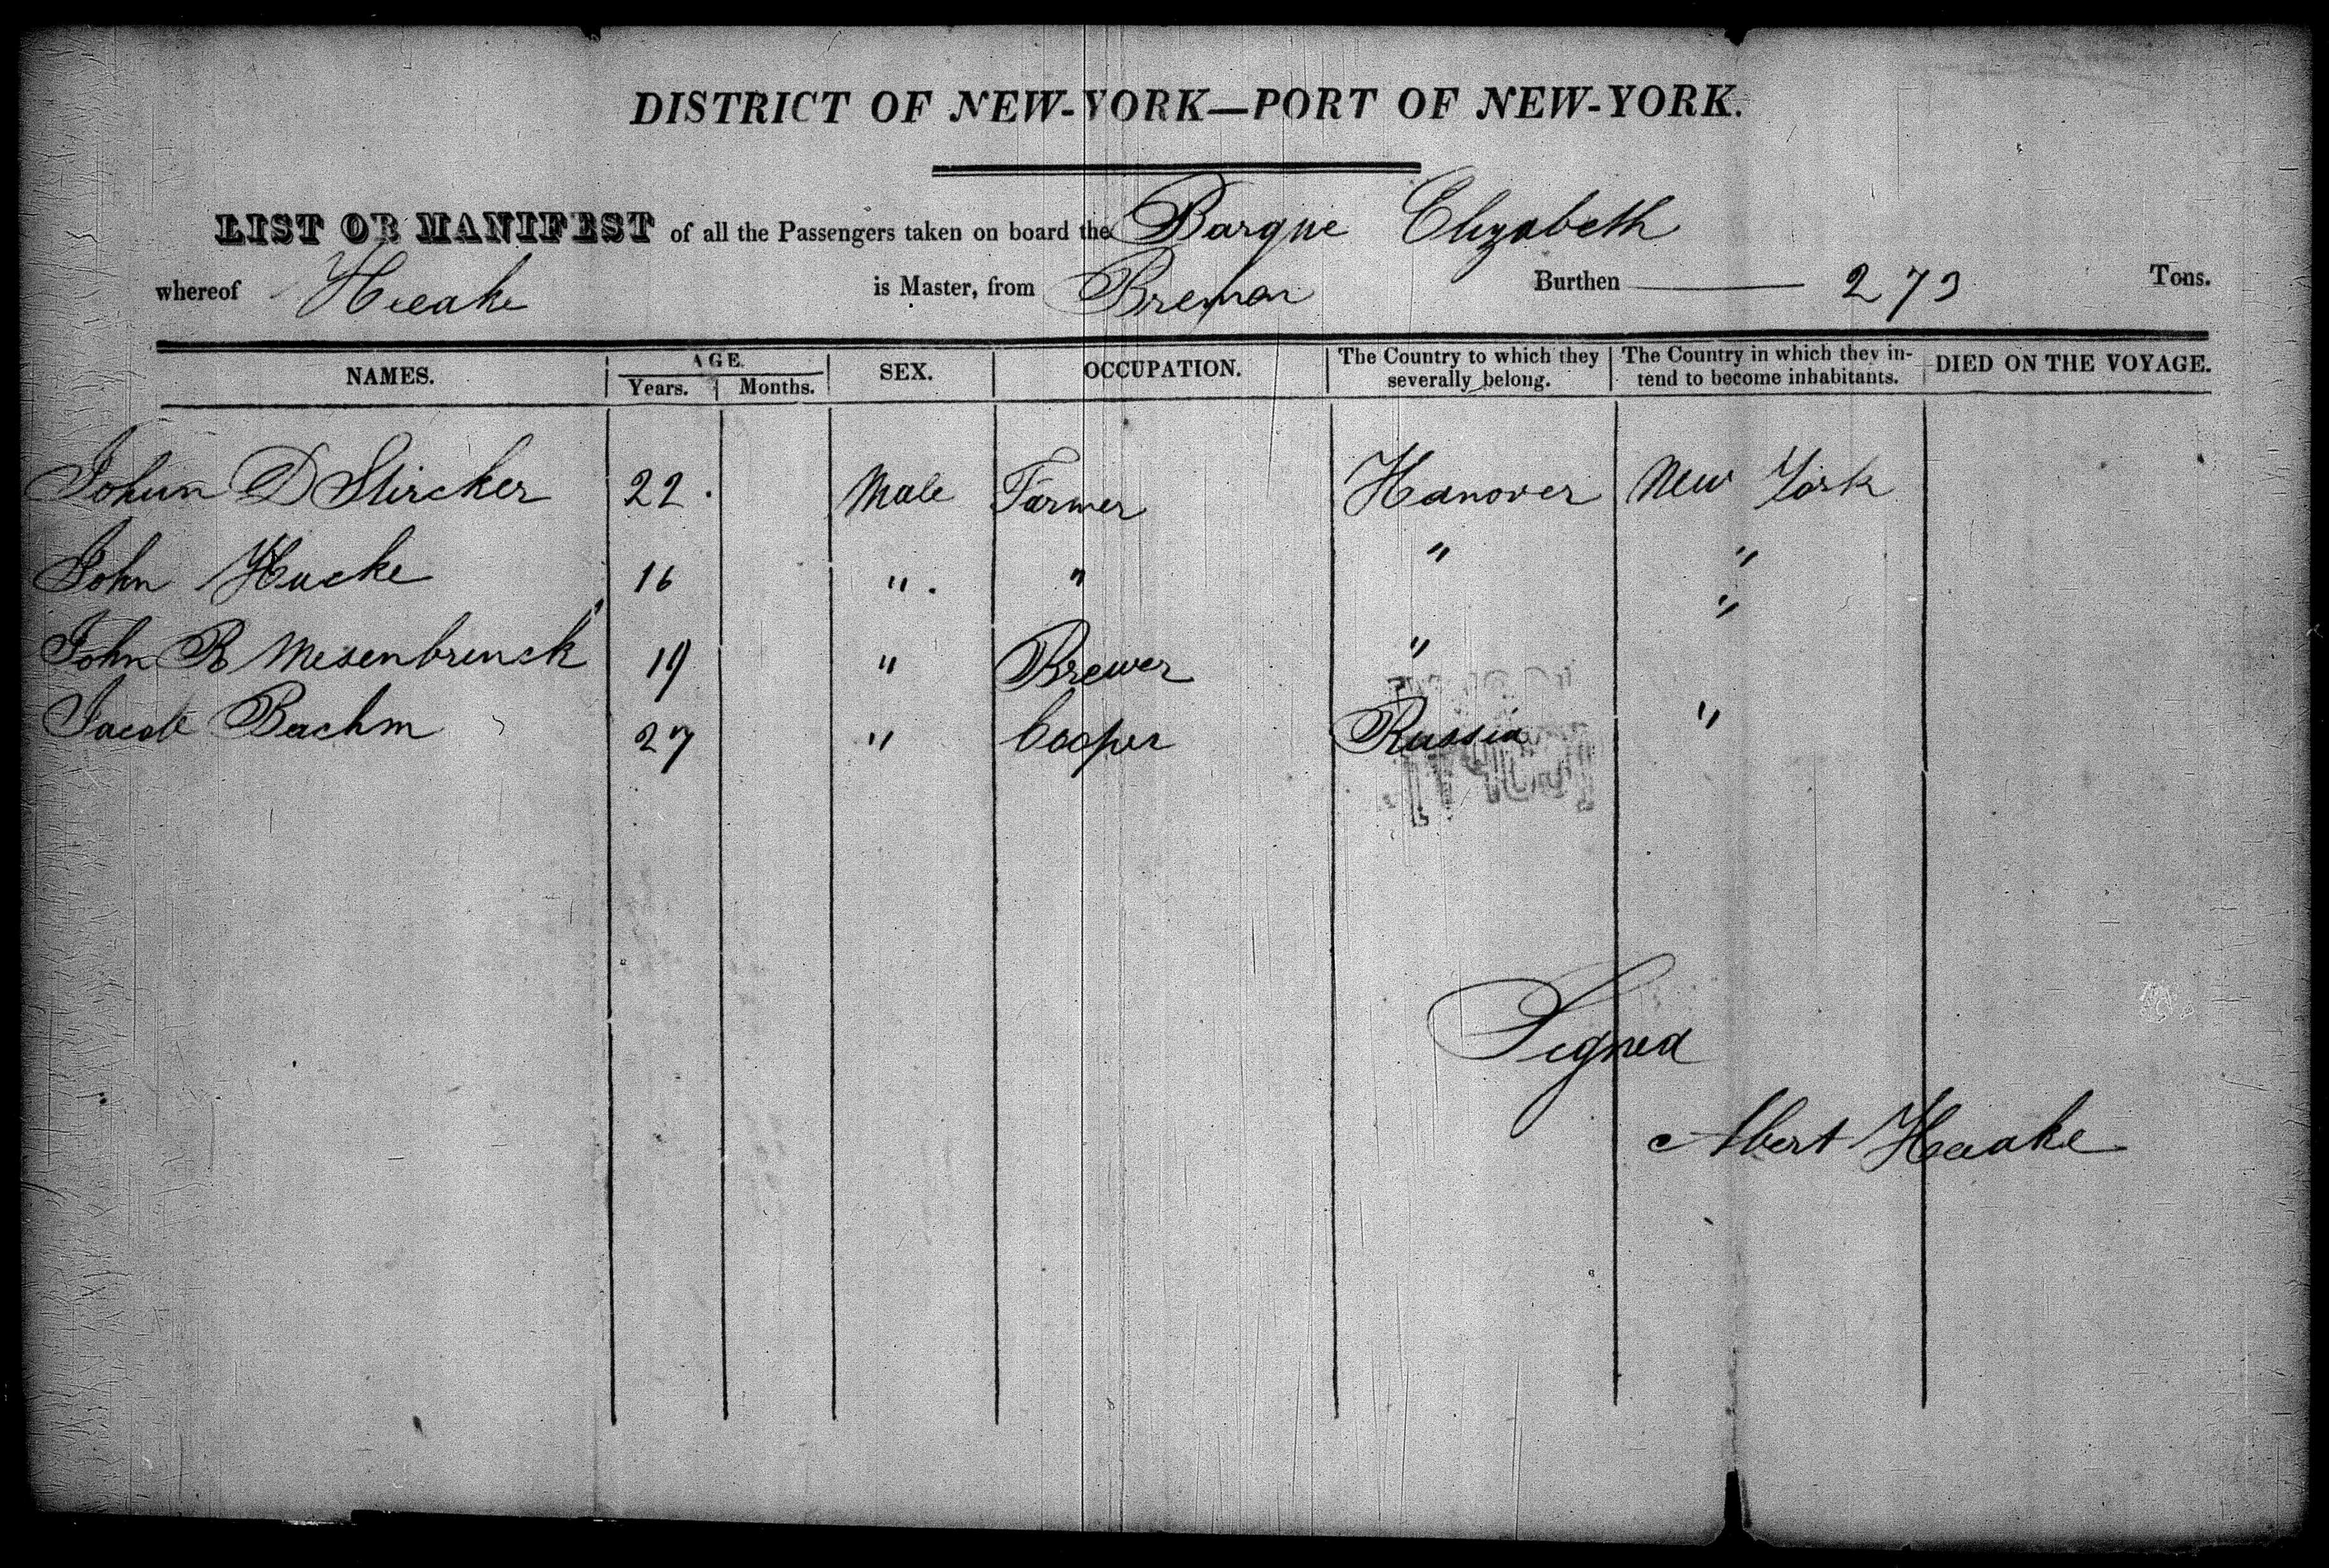 DISTRICT OF NEW-YORK—PORT OF NEW-YORK.
LIST OR MANIFEST of all the Passengers taken on board the Barque Elizabeth
whereof Haake is Master, from Bremen Burthen 273 Tons.
NAMES. AGE. Years. Months. SEX. OCCUPATION. The Country to which they severally belong. The Country in which they intend to become inhabitants. DIED ON THE VOYAGE.
Johann D Stircker 22 Male Farmer Hanover New York
John Hucke 16 " " " "
John R Mesenbrinck 19 " Brewer " "
Jacob Bachm 27 " Cooper Russia "
Signed
Albert Haake